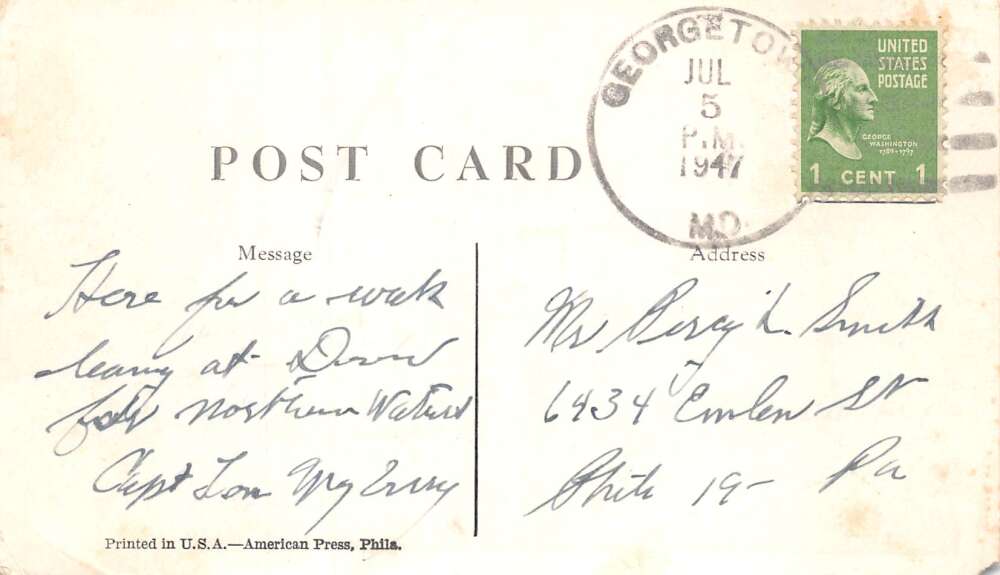 GEORGETOW
JUL
5
P.M.
1947
MD.
UNITED
STATES
POSTAGE
GEORGE
WASHINGTON
1789-1797
1 CENT 1
POST CARD
Message
Here for a week
leaving at Dawn
for Northern Waters
Capt Lon
Address
Mr Percy L. Smith
6434 Emlen St
Phila 19- Pa
Printed in U.S.A.—American Press, Phila.